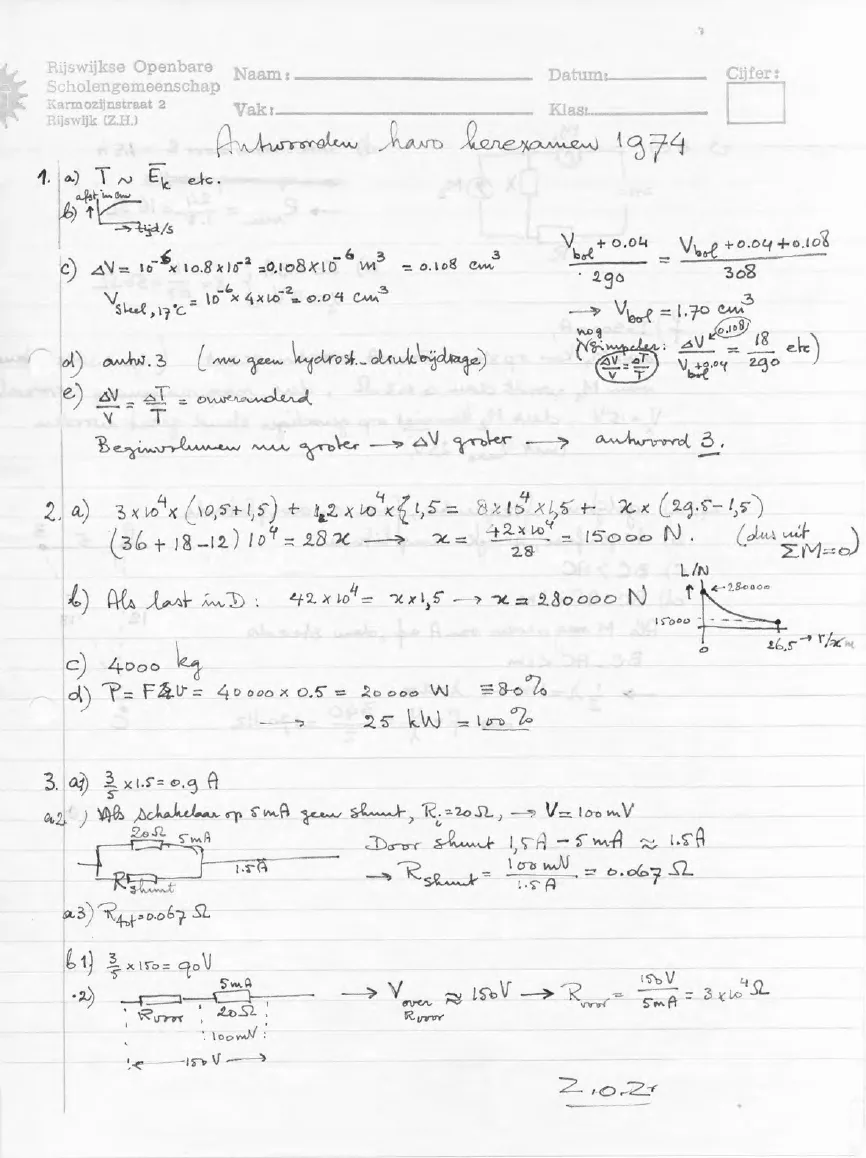 Rijswijkse Openbare
Scholengemeenschap
Karmozijnstraat 2
Rijswijk (Z.H.)
Naam: Datum: Cijfer:
Vak: Klas:
Antwoorden havo herexamen 1974
1. a) T ~ E̅k etc.
b) afst. in cm → tijd/s
c) ΔV = 10⁻⁶ x 10.8 x 10⁻² = 0.108 x 10⁻⁶ m³ = 0.108 cm³
V steel, 17°C = 10⁻⁶ x 4 x 10⁻² = 0.04 cm³
(V bol + 0.04)/290 = (V bol + 0.04 + 0.108)/308
→ V bol = 1.70 cm³
(nog simpeler: ΔV/(V bol + 0.04) = 18/290 etc)
0.108
ΔV/V = ΔT/T
d) antw. 3 (nu geen hydrost. drukbijdrage)
e) ΔV/V = ΔT/T = onveranderd
Beginvolumen nu groter → ΔV groter → antwoord 3.
2. a) 3 x 10⁴ x (10,5 + 1,5) + 1,2 x 10⁴ x 1,5 = 8 x 10⁴ x 1,5 + x x (29.5 - 1,5)
(36 + 18 - 12) 10⁴ = 28 x → x = 42 x 10⁴/28 = 15000 N. (dus uit ΣM = 0)
b) Als last in D: 42 x 10⁴ = x x 1,5 → x = 280000 N
L/N
280000
15000
0 26,5 → r/m
c) 4000 kg
d) P = F v = 40000 x 0.5 = 20000 W ≡ 80%
→ 25 kW = 100%
3. a1) 3/5 x 1.5 = 0.9 A
a2) Als schakelaar op 5 mA geen shunt, Ri = 20 Ω, → V = 100 mV
20 Ω 5 mA
1.5 A
R shunt
Door shunt 1,5 A - 5 mA ≈ 1.5 A
→ R shunt = 100 mV/1.5 A = 0.067 Ω
a3) R tot = 0.067 Ω
b1) 3/5 x 150 = 90 V
2) 5 mA
R voor 20 Ω
100 mV
150 V
→ V over R voor ≈ 150 V → R voor = 150 V/5 mA = 3 x 10⁴ Ω
Z.O.Z.